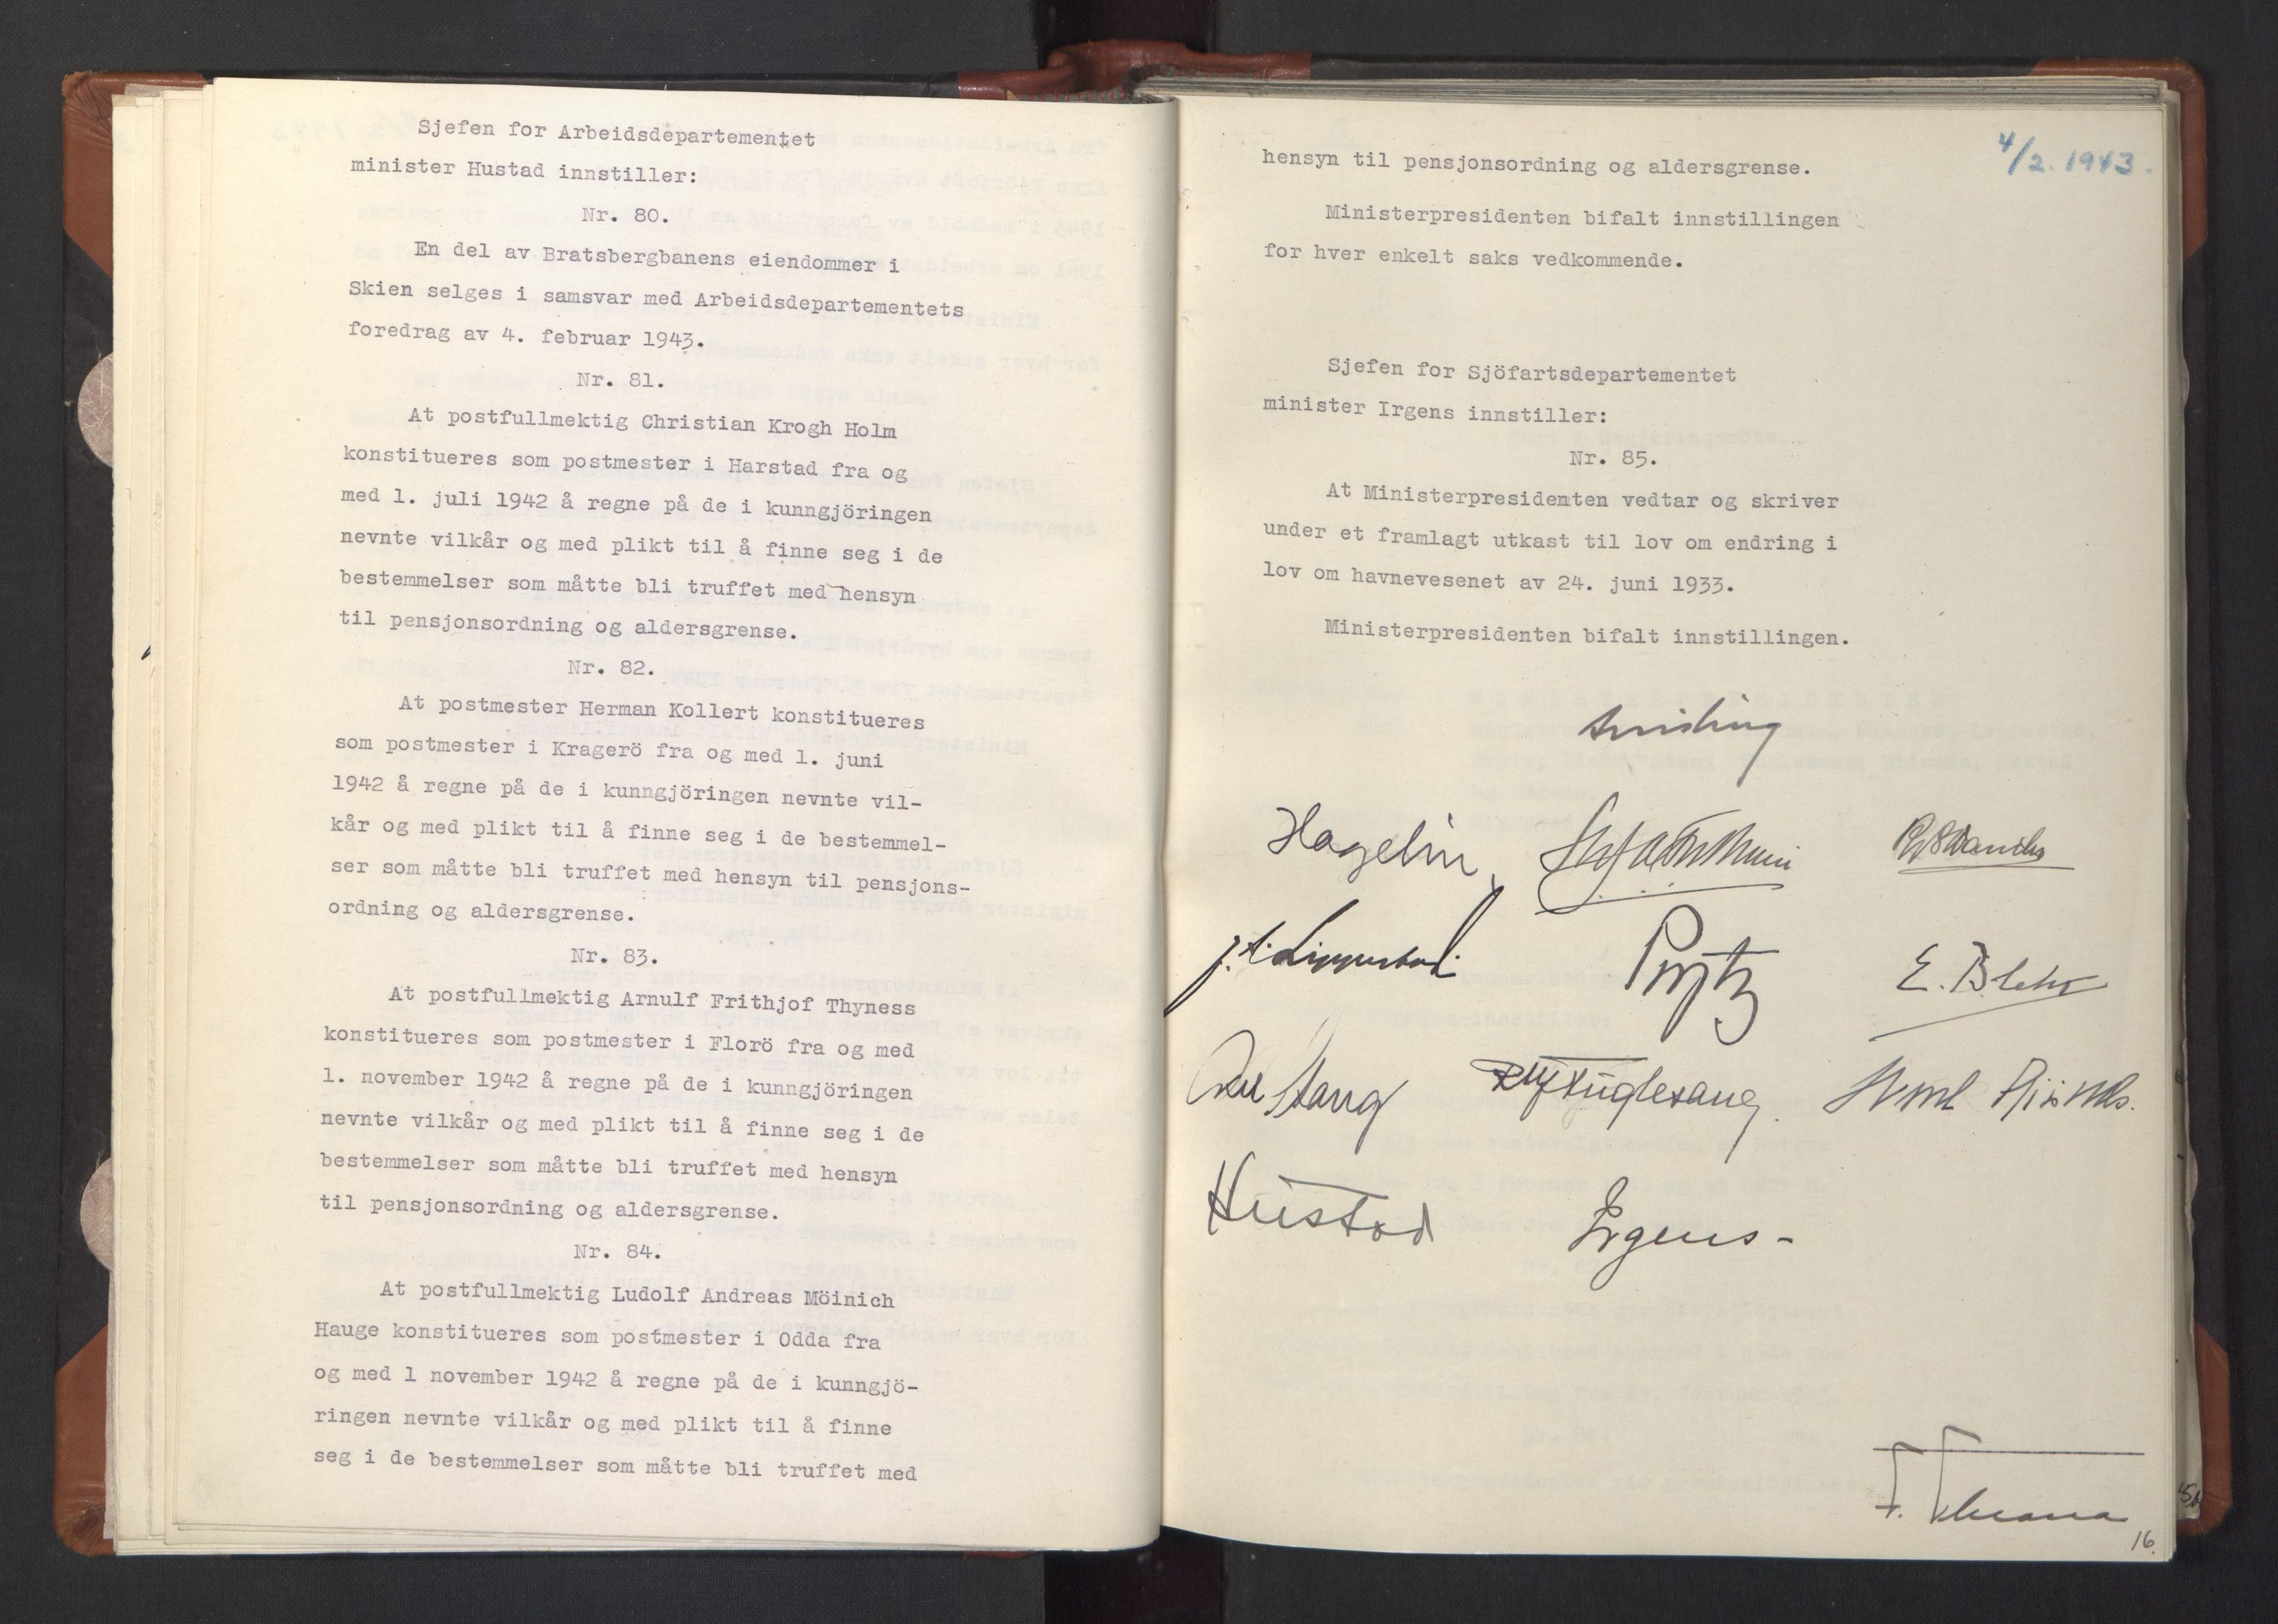 Sjefen for Arbeidsdepartementet
minister Hustad innstiller:
Nr. 80.
En del av Bratsbergbanens eiendommer i
Skien selges i samsvar med Arbeidsdepartementets
foredrag av 4. februar 1943.
Nr. 81.
At postfullmektig Christian Krogh Holm
konstitueres som postmester i Harstad fra og
med 1. juli 1942 å regne på de i kunngjöringen
nevnte vilkår og med plikt til å finne seg i de
bestemmelser som måtte bli truffet med hensyn
til pensjonsordning og aldersgrense.
Nr. 82.
At postmester Herman Kollert konstitueres
som postmester i Kragerö fra og med 1. juni
1942 å regne på de i kunngjöringen nevnte vil-
kår og med plikt til å finne seg i de bestemmel-
ser som måtte bli truffet med hensyn til pensjons-
ordning og aldersgrense.
Nr. 83.
At postfullmektig Arnulf Frithjof Thyness
konstitueres som postmester i Florö fra og med
1. november 1942 å regne på de i kunngjöringen
nevnte vilkår og med plikt til å finne seg i de
bestemmelser som måtte bli truffet med hensyn
til pensjonsordning og aldersgrense.
Nr. 84.
At postfullmektig Ludolf Andreas Möinich
Hauge konstitueres som postmester i Odda fra
og med 1 november 1942 å regne på de i kunngjö-
ringen nevnte vilkår og med plikt til å finne
seg i de bestemmelser som måtte bli truffet med
4/2. 1943.
hensyn til pensjonsordning og aldersgrense.
Ministerpresidenten bifalt innstillingen
for hver enkelt saks vedkommende.
Sjefen for Sjöfartsdepartementet
minister Irgens innstiller:
Nr. 85.
At Ministerpresidenten vedtar og skriver
under et framlagt utkast til lov om endring i
lov om havnevesenet av 24. juni 1933.
Ministerpresidenten bifalt innstillingen.
Hagelin
Lippestad
Prytz
E.
Stang
Fuglesang
Hustad
Irgens
16.